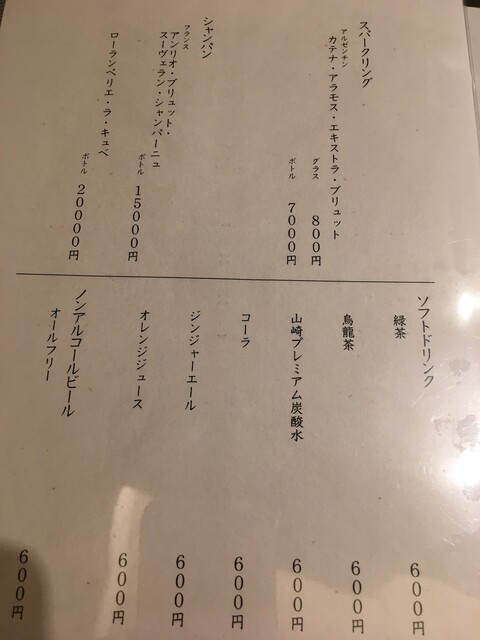 スパークリング
アルゼンチン
カテナ・アラモス・エキストラ・ブリュット
グラス 800円
ボトル 7000円
シャンパン
フランス
アンリオ・ブリュット・
スーヴェラン・シャンパーニュ
ボトル 15000円
ローランペリエ・ラ・キュベ
ボトル 20000円
ソフトドリンク
緑茶 600円
烏龍茶 600円
山崎プレミアム炭酸水 600円
コーラ 600円
ジンジャーエール 600円
オレンジジュース 600円
ノンアルコールビール
オールフリー 600円